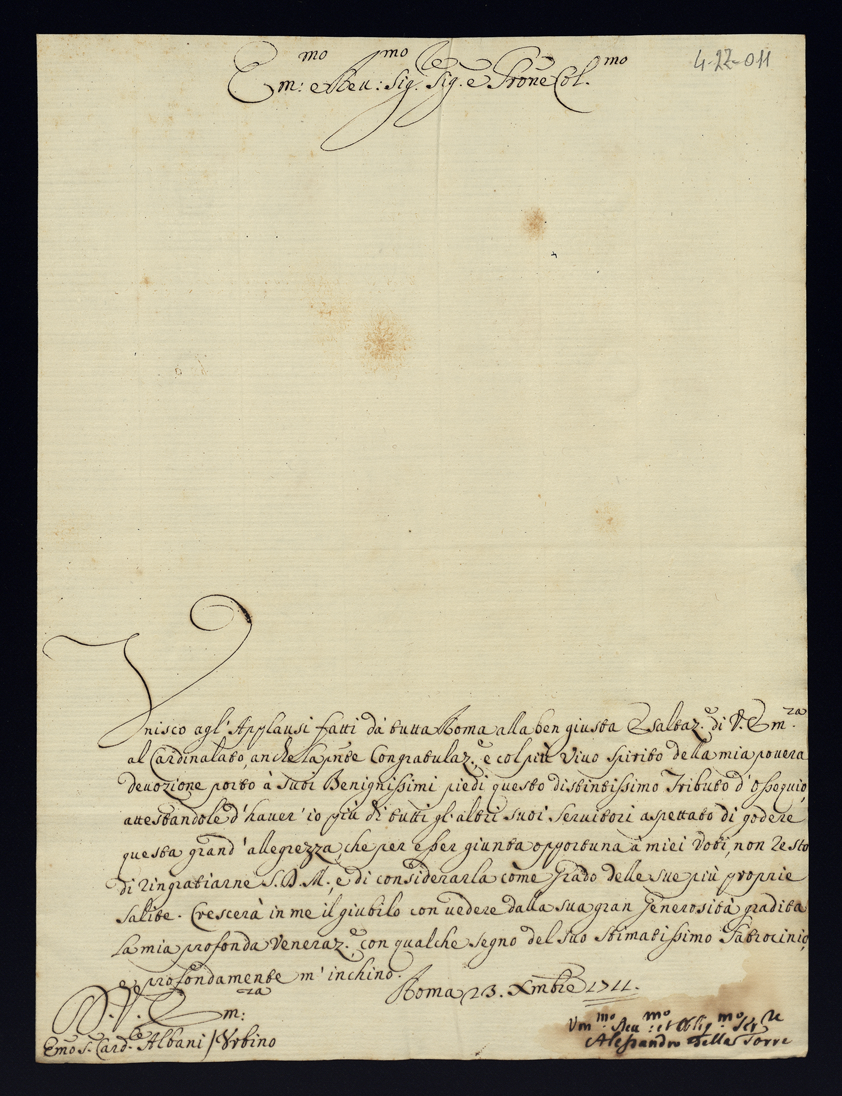 4-22-011
Em:mo e Reu:mo Sig. Sig.le e Prone Col.mo
Vnisco agl' Applausi fatti da tutta Roma alla ben giusta Esaltaz.e di V. Em.za
al Cardinalato, anche la pnte Congratulaz.e, e col più Viuo Spirito della mia pouera
deuozione porto à Suoi Benignissimi piedi questo distintissimo Tributo d'Ossequio,
attestandole d'hauer'io più di tutti gl'altri suoi Seruitori aspettato di godere
questa grand'allegrezza, che per esser giunta opportuna à miei Voti, non resto
di ringratiarne S. D. M., e di considerarla come Grado delle sue più proprie
Salite. Crescerà in me il giubilo con uedere dalla sua gran Generosità gradita
la mia profonda Veneraz.e con qualche segno del suo stimatissimo Patrocinio,
e profondamente m'inchino.
Roma 23. Xmbre 1711.
D. V. Em:za
Emo S. Card.le Albani / Vrbino
Vm.mo Deu.mo et Oblig.mo Ser.re
Alessandro della Torre